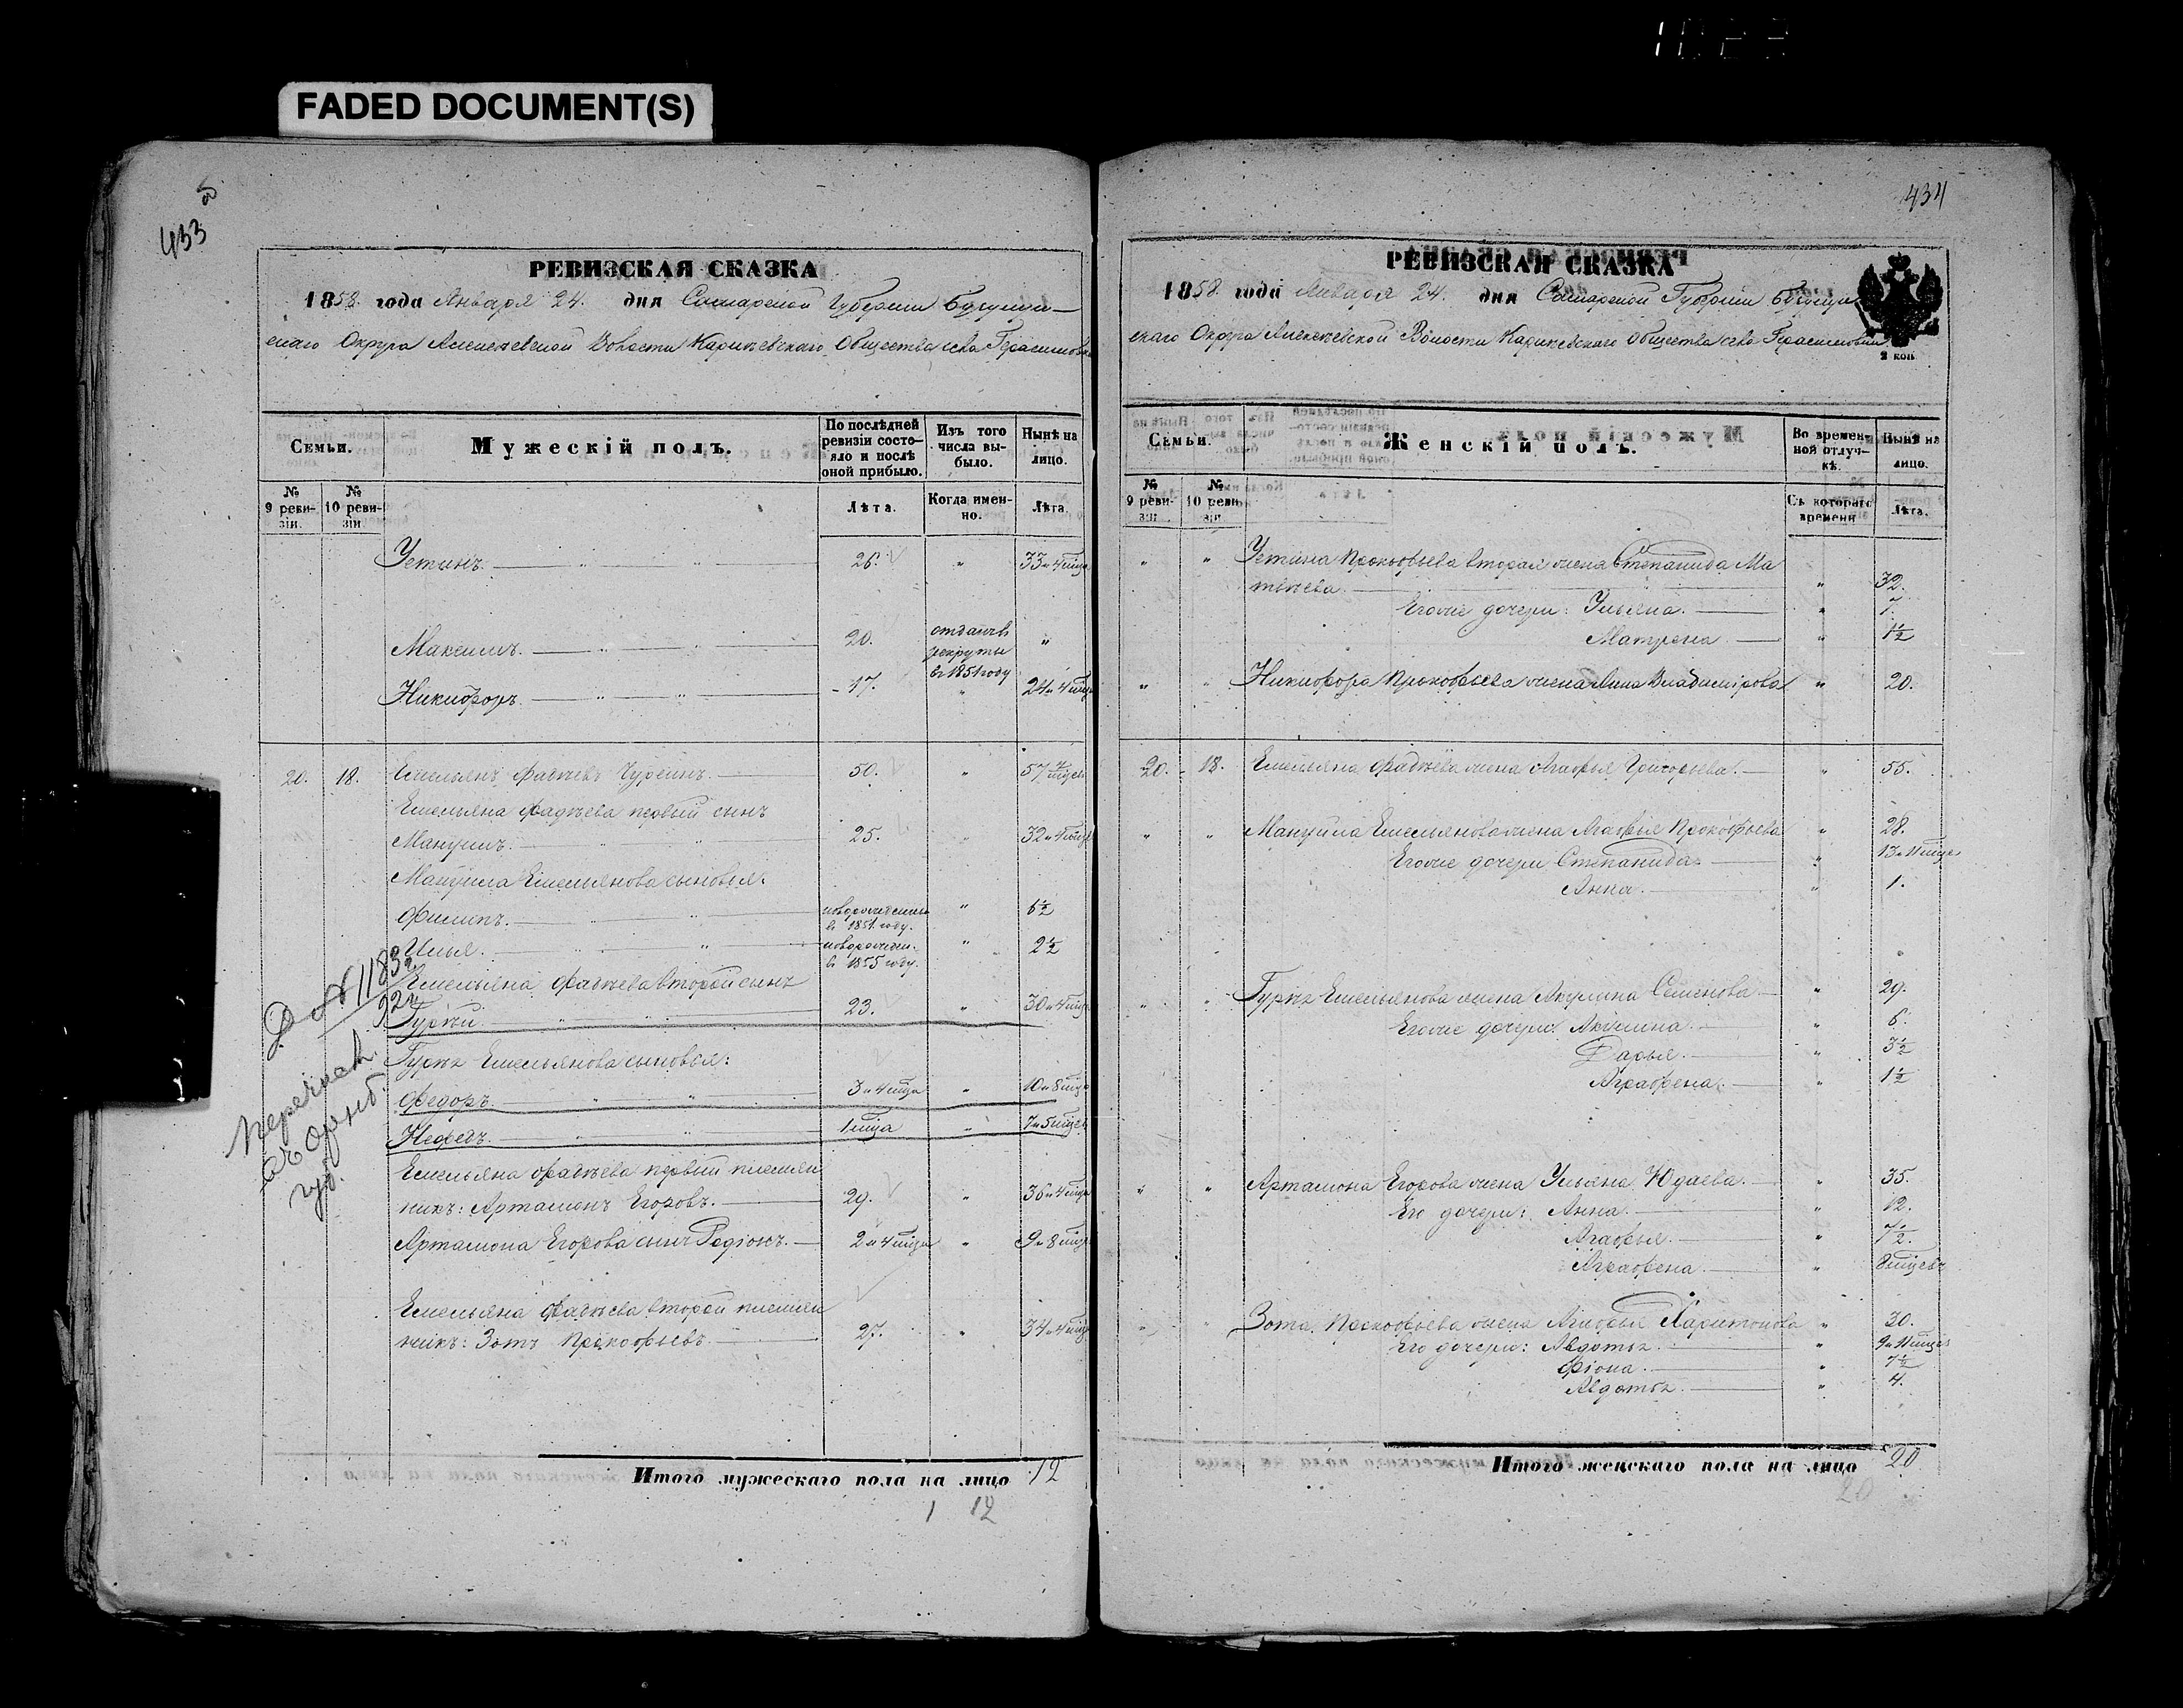 FADED DOCUMENT(S)
433
РЕВИЗСКАЯ СКАЗКА
1858 года Января 24. дня Самарской Губерніи Бугульмин—
скаго Округа Алексеевской Волости Общества села Герасимовки
Семьи.
Мужескій полъ.
По послѣдней ревизіи состояло и послѣ оной прибыло.
Изъ того числа выбыло.
Нынѣ на лицо.
№ 9 ревизіи.
№ 10 ревизіи
Лѣта.
Когда именно.
Лѣта.
Устинъ. — " — " 26. " 33 и 4 мѣца
Максимъ. — " — " 20. отданъ въ рекруты в 1851 году "
Никифоръ. — " — " 17. " 24 и 4 мѣца
20. 18. Емельянъ Фадѣевъ Чуреинъ. — 50. " 57 4 мѣцев
Емельяна Фадѣева первый сынъ
Мануилъ. — " — " 25. " 32 и 4 мѣца
Мануила Емельянова сыновья:
Филипъ. — " — " новорожденъ в 1851. году. " 6½
Илья. — " — " новорожден. в 1855 году. " 2½
Емельяна Фадѣева второй сынъ
Гурѣй — " — " 23. " 30 и 4 мѣца
Гурѣя Емельянова сыновья:
Федоръ. — " — " 3 и 4 мѣца " 10 и 8 мѣца
Нефедъ. — " — " 1 мѣца " 7 и 5 мѣцев
Емельяна Фадѣева первый племян
никъ: Артамонъ Егоровъ. — 29. " 36 и 4 мѣца
Артамона Егорова сынъ Родіонъ. — 2 и 4 мѣца " 9 и 8 мѣца
Емельяна Фадѣева второй племян
никъ: Зотъ Прокофьевъ. — 27. " 34 и 4 мѣца
Итого мужескаго пола на лицо 12
1 12
1183
перечисл.
въ Оренб.
губ.
434
РЕВИЗСКАЯ СКАЗКА
1858. года Января 24. дня Самарской Губерніи Бугульмин
скаго Округа Алексеевской Волости Общества села Герасимовки
2 коп
Семьи.
Женскій полъ.
Во временной отлучкѣ.
Нынѣ на лицо.
№ 9 ревизіи
№ 10 ревизіи
Съ котораго времени
Лѣта.
" " Устина Прокофьева вторая жена Степанида Ма
твѣева. — " 32.
Егоже дочери: Ульяна. — " 7.
Матрена. — " 1½
" " Никифора Прокофьева жена Анна Владимірова " 20.
20. 18. Емельяна Фадѣева жена Агафья Григорьева. — " 55.
" " Мануила Емельянова жена Агафья Прокофьева " 28.
Егоже дочери Степанида. — " 13 и 11 мѣцев
Анна. — " 1.
" " Гурѣя Емельянова жена Акулина Семенова — " 29.
Егоже дочери: Акулина. — " 6.
Дарья. — " 3½
Аграфена. — " 1½
" " Артамона Егорова жена Ульяна Юдаева. — " 35.
Его дочери: Анна. — " 12.
Агафья. — " 7½.
Аграфена. — " 8 мѣцевъ
" " Зота Прокофьева жена Агафья Харитонова " 30.
Его дочери: Авдотья. — " 9 и 11 мѣцев
Фіона. — " 7½
Авдотья. — " 4.
Итого женскаго пола на лицо 20
20